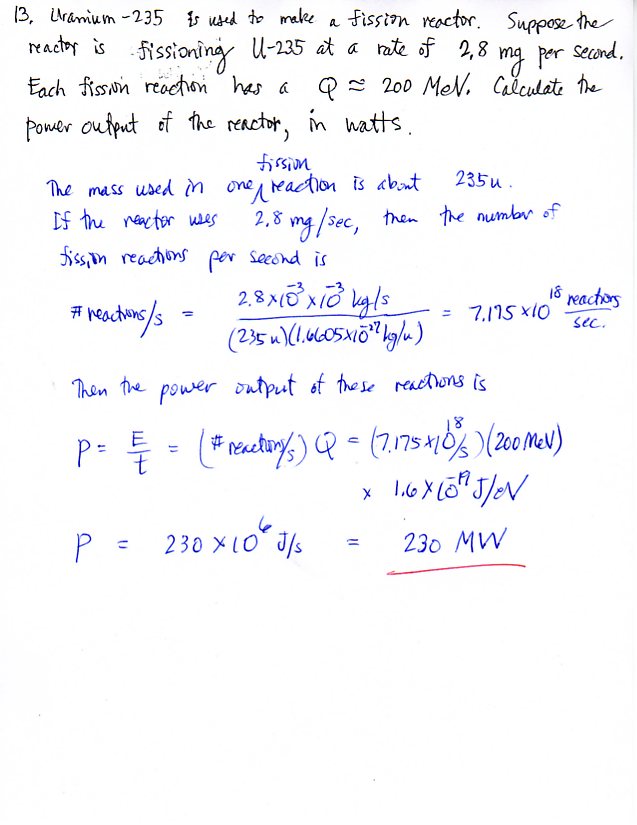 13. Uranium-235 is used to make a fission reactor. Suppose the
reactor is fissioning U-235 at a rate of 2,8 mg per second.
Each fission reaction has a Q ≈ 200 MeV. Calculate the
power output of the reactor, in watts.
fission
The mass used in one ∧ reaction is about 235u.
If the reactor uses 2.8 mg/sec, then the number of
fission reactions per second is
# reactions/s = 2.8×10⁻³ × 10⁻³ kg/s / (235u)(1.6605×10⁻²⁷ kg/u) = 7.175×10¹⁸ reactions/sec.
Then the power output of these reactions is
P = E/t = (# reactions/s) Q = (7.175×10¹⁸/s)(200 MeV)
× 1.6×10⁻¹⁹ J/eV
P = 230 × 10⁶ J/s = 230 MW